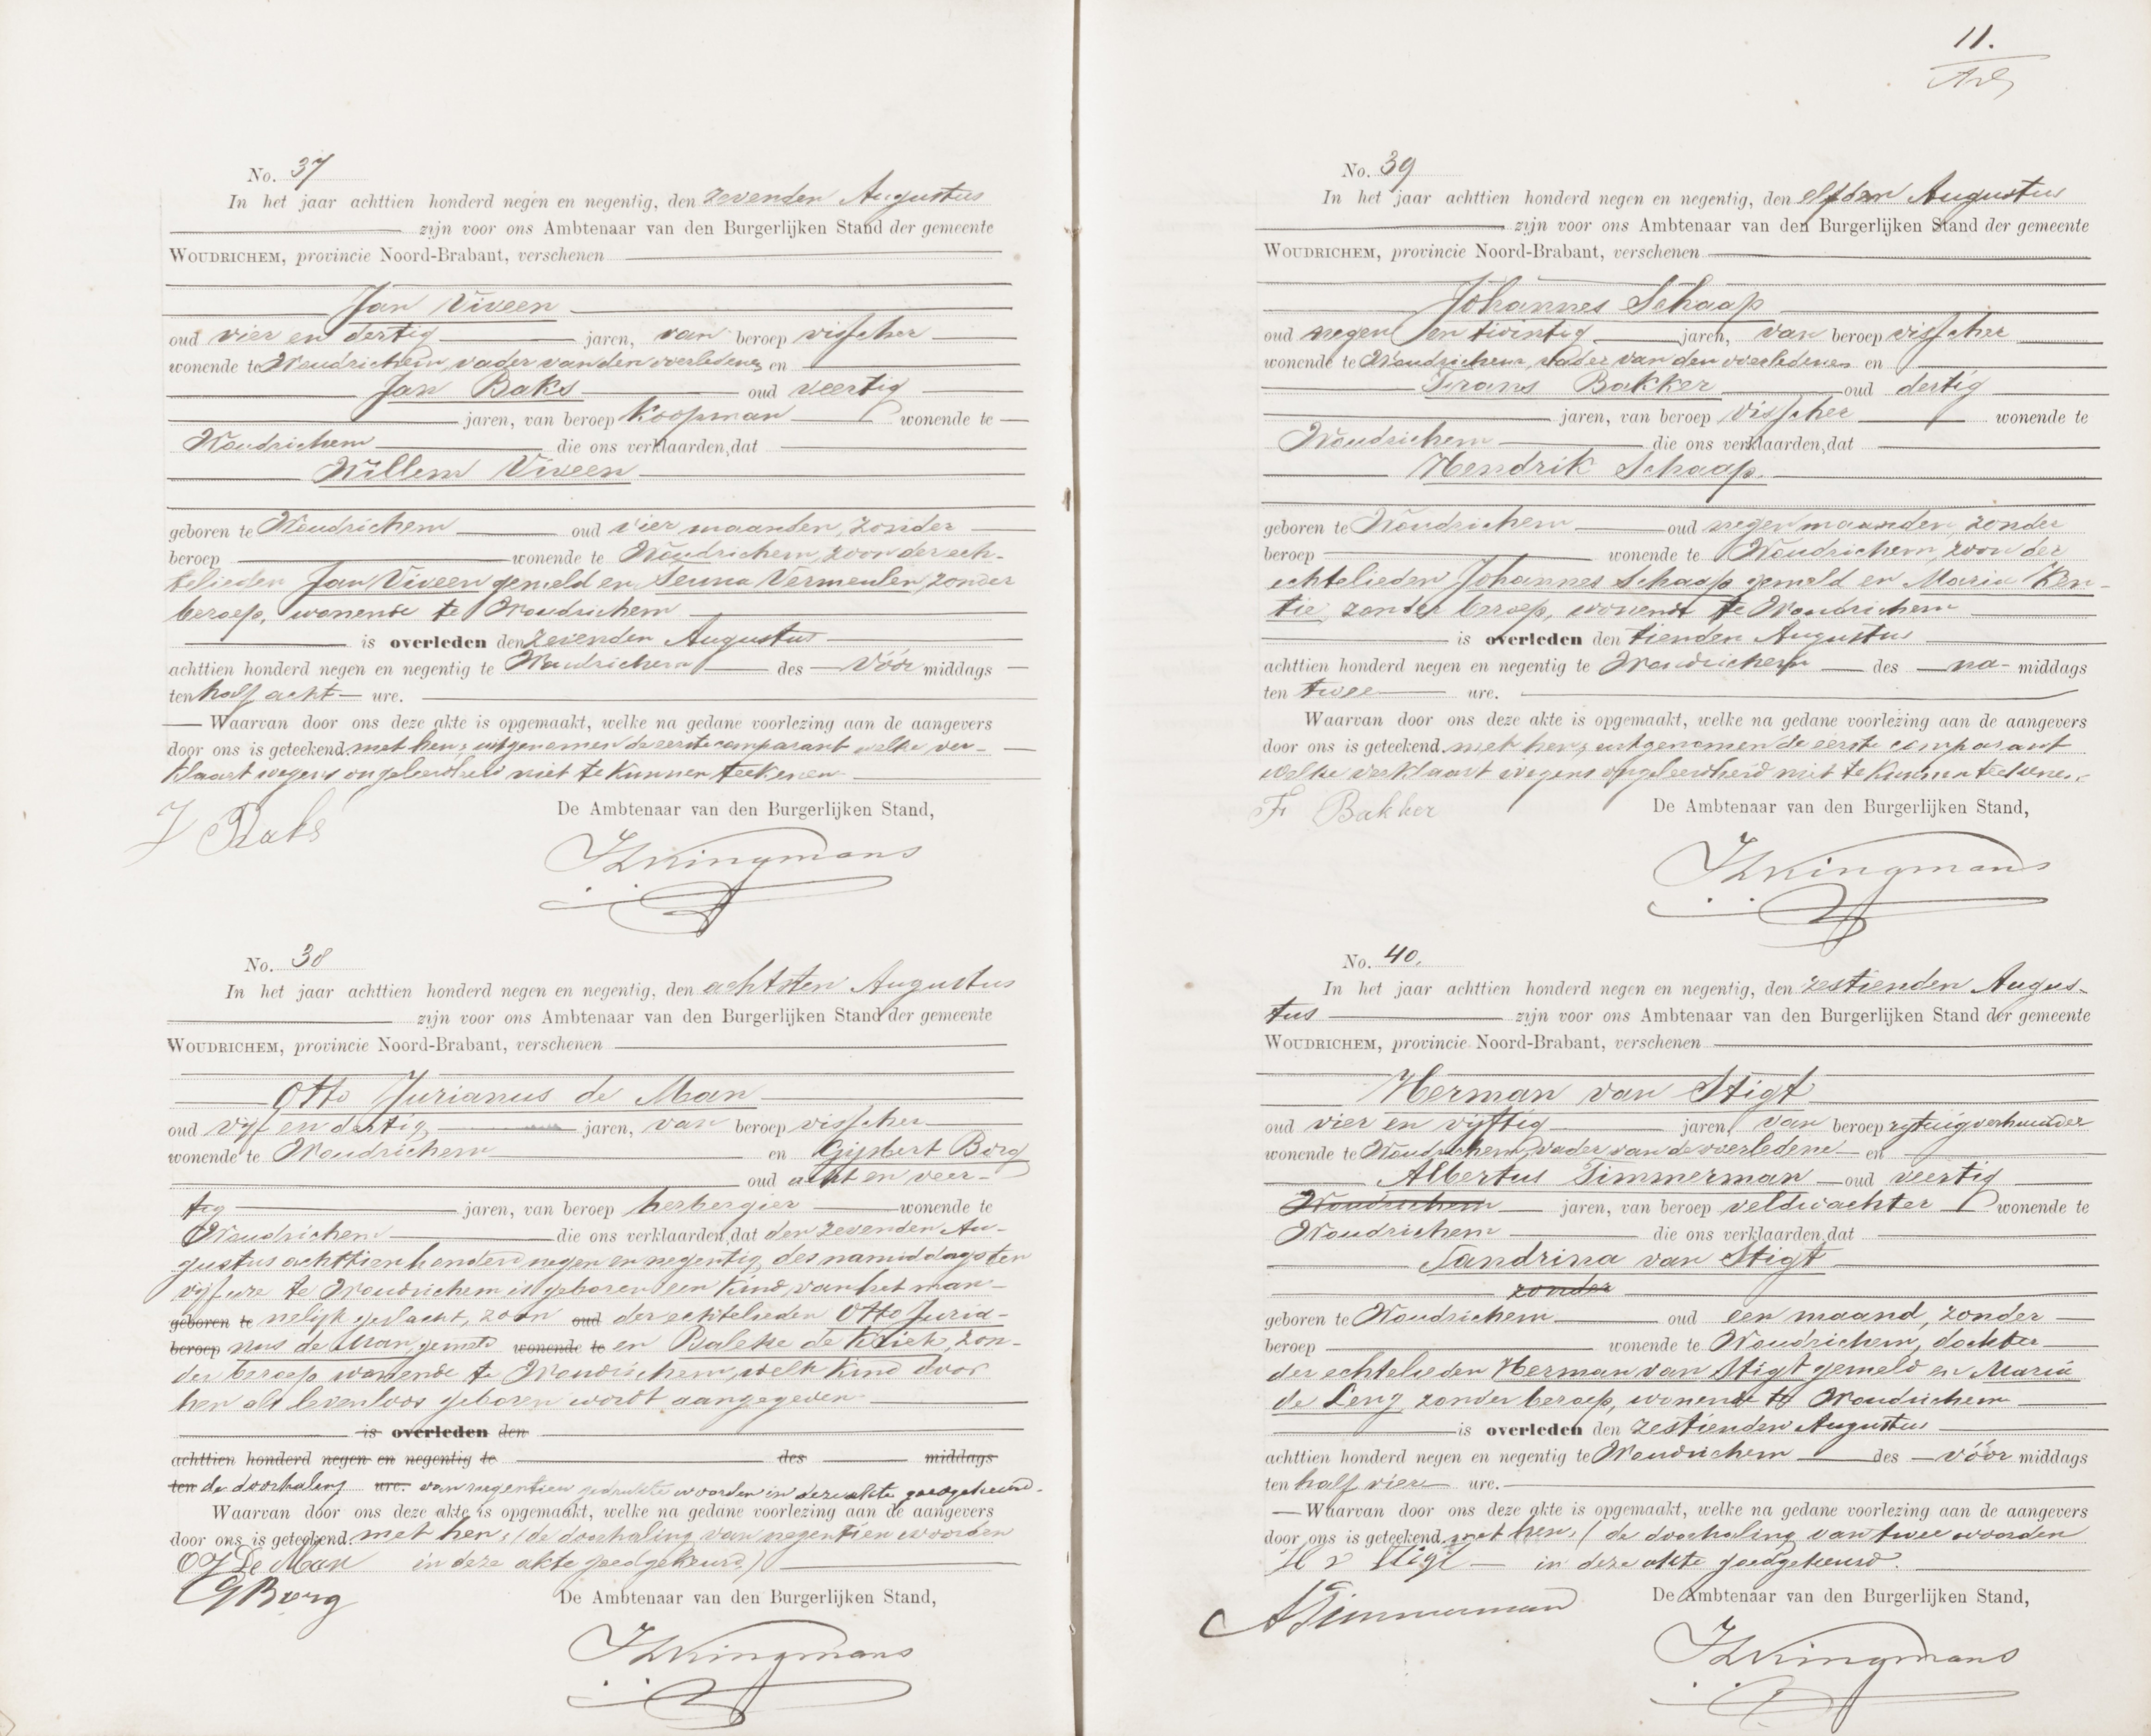 No. 37
In het jaar achttien honderd negen en negentig, den zevenden Augustus
zijn voor ons Ambtenaar van den Burgerlijken Stand der gemeente
WOUDRICHEM, provincie Noord-Brabant, verschenen
Jan Viveen
oud vier en dertig jaren, van beroep visscher
wonende te Woudrichem, vader van den overledene, en
Jan Baks oud veertig
jaren, van beroep Koopman wonende te
Woudrichem die ons verklaarden, dat
Willem Viveen
geboren te Woudrichem oud vier maanden, zonder
beroep wonende te Woudrichem, zoon der ech-
telieden Jan Viveen gemeld en Teuna Vermeulen, zonder
beroep, wonende te Woudrichem
is overleden den zevenden Augustus
achttien honderd negen en negentig te Woudrichem des vóór middags
ten half acht ure.
Waarvan door ons deze akte is opgemaakt, welke na gedane voorlezing aan de aangevers
door ons is geteekend met hen, uitgenomen de eerste comparant welke ver-
klaart wegens ongeleerdheid niet te kunnen teekenen
J Baks
De Ambtenaar van den Burgerlijken Stand,
Kingmans
No. 38
In het jaar achttien honderd negen en negentig, den achtsten Augustus
zijn voor ons Ambtenaar van den Burgerlijken Stand der gemeente
WOUDRICHEM, provincie Noord-Brabant, verschenen
Otto Jurianus de Man
oud vijf en dertig jaren, van beroep visscher
wonende te Woudrichem en Gijsbert Borg
oud acht en veer-
tig jaren, van beroep herbergier wonende te
Woudrichem die ons verklaarden, dat den zevenden Au-
gustus achttien honderd negen en negentig des namiddags ten
vijf ure te Woudrichem is geboren een kind van het man-
geboren te nelijk geslacht, zoon oud der echtelieden Otto Juria-
beroep nus de Man, gemeld wonende te en Baleke de Kriek, zon-
der beroep wonende te Woudrichem, welk kind door
hen als levenloos geboren wordt aangegeven
is overleden den
achttien honderd negen en negentig te des middags
ten de doorhaling ure. van negentien gedrukte woorden in deze akte goedgekeurd.
Waarvan door ons deze akte is opgemaakt, welke na gedane voorlezing aan de aangevers
door ons is geteekend. met hen, (de doorhaling van negentien woorden
OJ De Man in deze akte goedgekeurd)
G Borg
De Ambtenaar van den Burgerlijken Stand,
Kingmans
11.
No. 39
In het jaar achttien honderd negen en negentig, den elfden Augustus
zijn voor ons Ambtenaar van den Burgerlijken Stand der gemeente
WOUDRICHEM, provincie Noord-Brabant, verschenen
Johannes Schaap
oud negen en twintig jaren, van beroep visscher
wonende te Woudrichem, vader van den overledenen en
Frans Bakker oud dertig
jaren, van beroep visscher wonende te
Woudrichem die ons verklaarden, dat
Hendrik Schaap.
geboren te Woudrichem oud negen maanden, zonder
beroep wonende te Woudrichem, zoon der
echtelieden Johannes Schaap gemeld en Maria Ken-
tie, zonder beroep, wonende te Woudrichem
is overleden den tienden Augustus
achttien honderd negen en negentig te Woudrichem des na- middags
ten twee ure.
Waarvan door ons deze akte is opgemaakt, welke na gedane voorlezing aan de aangevers
door ons is geteekend. met hen, uitgenomen de eerste comparant
welke verklaart wegens ongeleerdheid niet te kunnen teekenen.
F Bakker
De Ambtenaar van den Burgerlijken Stand,
Kingmans
No. 40.
In het jaar achttien honderd negen en negentig, den zestienden Augus-
tus zijn voor ons Ambtenaar van den Burgerlijken Stand der gemeente
WOUDRICHEM, provincie Noord-Brabant, verschenen
Herman van Stigt
oud vier en vijftig jaren, van beroep rijtuigverhuurder
wonende te Woudrichem, vader van de overledene en
Albertus Timmerman oud veertig
Woudrichem jaren, van beroep veldwachter wonende te
Woudrichem die ons verklaarden, dat
Sandrina van Stigt
zonder
geboren te Woudrichem oud een maand, zonder
beroep wonende te Woudrichem, dochter
der echtelieden Herman van Stigt gemeld en Maria
de Leng, zonder beroep, wonende te Woudrichem
is overleden den zestienden Augustus
achttien honderd negen en negentig te Woudrichem des vóór middags
ten half vier ure.
Waarvan door ons deze akte is opgemaakt, welke na gedane voorlezing aan de aangevers
door ons is geteekend met hen, (de doorhaling van twee woorden
H v Stigt in deze akte goedgekeurd.
A Timmerman
De Ambtenaar van den Burgerlijken Stand,
Kingmans